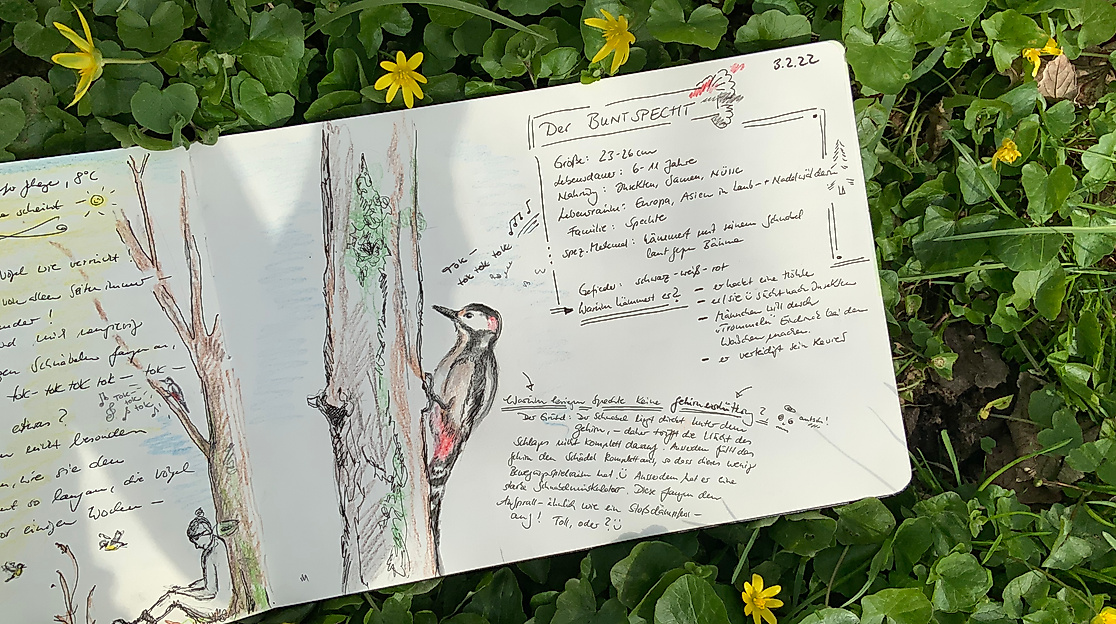 8°C
scheint
Vögel wie verrückt
von allen Seiten immer
Schnäbeln fangen an,
tok-tok tok tok – tok –
tok-
tok
tok
etwas?
nicht besonders
wie sie den
so langsam, die Vögel
vor einigen Wochen –
3.2.22
Der BUNTSPECHT
Größe: 23-26 cm
Lebensdauer: 6-11 Jahre
Nahrung: Insekten, Samen, Nüsse
Lebensräume: Europa, Asien in Laub- + Nadelwäldern
Familie: Spechte
spez. Merkmal: hämmert mit seinem Schnabel
laut gegen Bäume
Tok-
tok tok tok
Gefieder: schwarz-weiß-rot
Warum hämmert er?
– er hackt eine Höhle
– er/sie sucht nach Insekten
– Männchen will durch
"Trommeln" Eindruck bei den
Weibchen machen.
– er verteidigt sein Revier
Warum kriegen Spechte keine Gehirnerschütterung?
autsch!
Der Grund: Der Schnabel liegt direkt unter dem
Gehirn, – daher trifft die Wucht des
Schlages nicht komplett darauf. Ausserdem füllt das
Gehirn den Schädel komplett aus, so dass dieses wenig
Bewegungsspielraum hat. Ausserdem hat er eine
starke Schnabelmuskulatur. Diese fangen den
Aufprall – ähnlich wie ein Stoßdämpfer –
auf! Toll, oder?